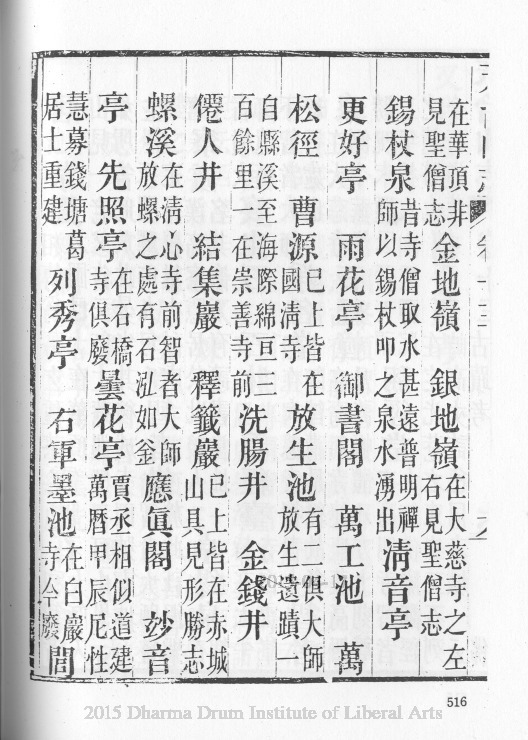 在華頂非見聖僧志 金地嶺 銀地嶺 在大慈寺之左右見聖僧志
錫杖泉 昔寺僧取水甚遠普明禪師以錫杖叩之泉水湧出 清音亭
更好亭 雨花亭 御書閣 萬工池 萬
松徑 曹源 已上皆在國清寺 放生池 有二俱大師放生遺蹟一
自縣溪至海際綿亘三百餘里 在崇善寺前 洗腸井 金錢井
僊人井 結集巖 釋籤巖 已上皆在赤城山具見形勝志
螺溪 在清心寺前智者大師放螺之處有石泓如釜 應眞閣 玅音
亭 先照亭 在石橋寺俱廢 曇花亭 賈丞相似道建萬曆甲辰尼性
慧募錢塘葛居士重建 列秀亭 右軍墨池 在白巖寺今廢 閭
516
2015 Dharma Drum Institute of Liberal Arts